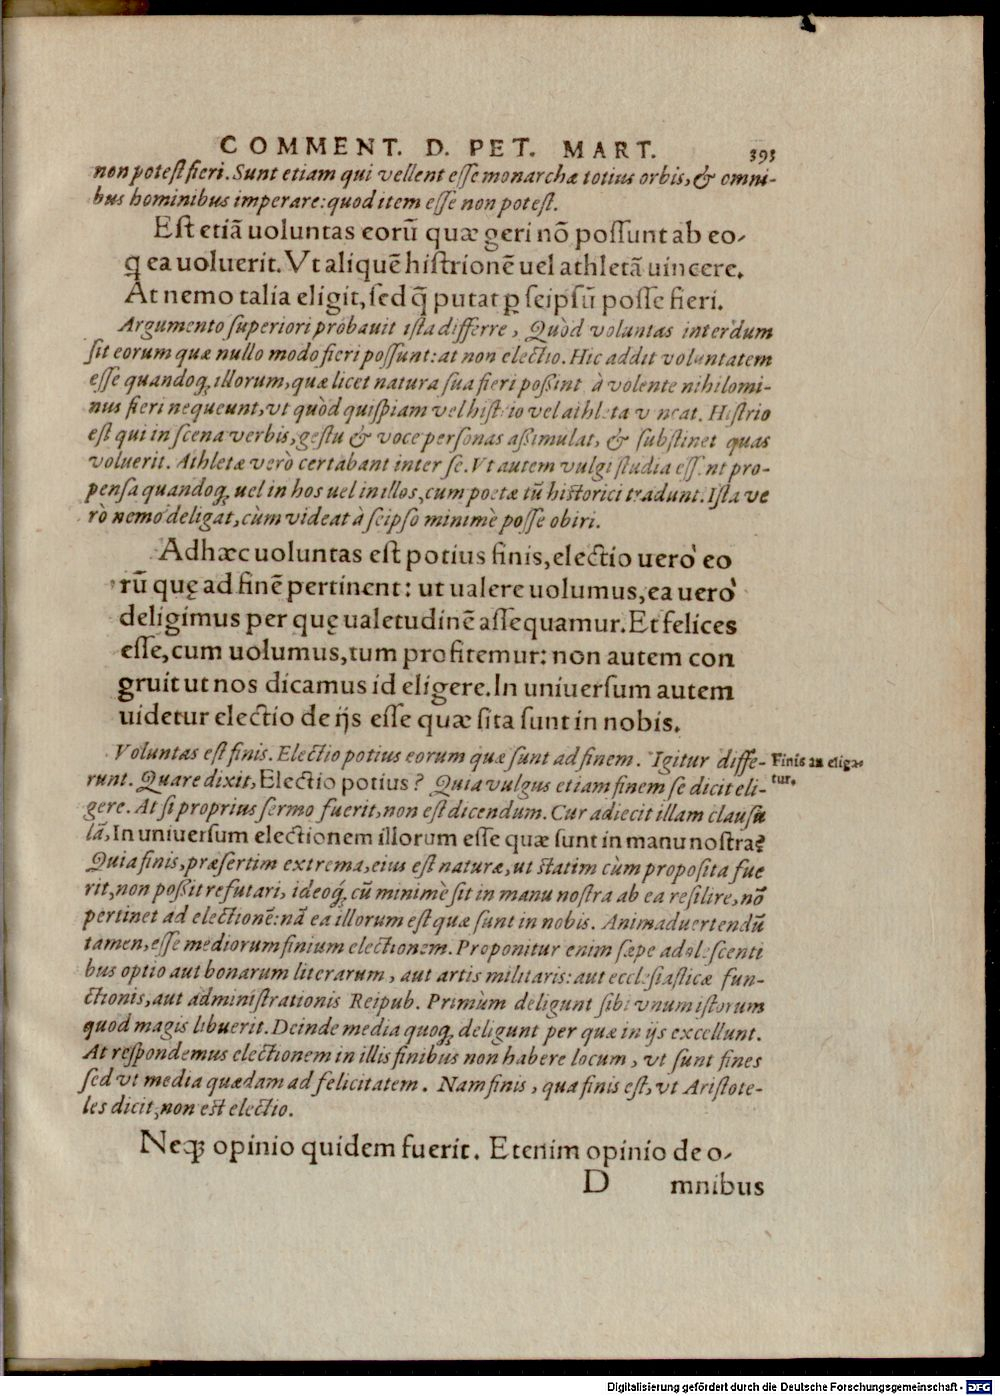 COMMENT. D. PET. MART. 393
non potest fieri. Sunt etiam qui vellent esse monarchæ totius orbis, & omni-
bus hominibus imperare: quod item esse non potest.
Est etiã uoluntas eorũ quæ geri nõ possunt ab eo-
q̃ ea uoluerit. Vt aliquẽ histrionẽ uel athletã uincere.
At nemo talia eligit, sed q̃ putat ꝑ seipsũ posse fieri.
Argumento superiori probauit ista differre, Quòd voluntas interdum
sit eorum quæ nullo modo fieri possunt: at non electio. Hic addit voluntatem
esse quandoq; illorum, quæ licet natura sua fieri poßint à volente nihilomi-
nus fieri nequeunt, vt quòd quispiam vel histrio vel athleta vincat. Histrio
est qui in scena verbis, gestu & voce personas aßimulat, & substinet quas
voluerit. Athletæ verò certabant inter se. Vt autem vulgi studia essent pro-
pensa quandoq; uel in hos uel in illos, cum poetæ tũ historici tradunt. Ista ve
rò nemo deligat, cùm videat à seipso minimè posse obiri.
Adhæc uoluntas est potius finis, electio uerò eo
rũ quę ad finẽ pertinent: ut ualere uolumus, ea uerò
deligimus per quę ualetudinẽ assequamur. Et felices
esse, cum uolumus, tum profitemur: non autem con
gruit ut nos dicamus id eligere. In uniuersum autem
uidetur electio de ijs esse quæ sita sunt in nobis.
Voluntas est finis. Electio potius eorum quæ sunt ad finem. Igitur diffe-
Finis an eliga-
tur.
runt. Quare dixit, Electio potius? Quia vulgus etiam finem se dicit eli-
gere. At si proprius sermo fuerit, non est dicendum. Cur adiecit illam clausu
lã, In uniuersum electionem illorum esse quæ sunt in manu nostra?
Quia finis, præsertim extrema, eius est naturæ, ut statim cùm proposita fue
rit, non poßit refutari, ideoq́; cũ minimè sit in manu nostra ab ea resilire, nõ
pertinet ad electionẽ: nã ea illorum est quæ sunt in nobis. Animaduertendũ
tamen, esse mediorum finium electionem. Proponitur enim sæpe adolescenti
bus optio aut bonarum literarum, aut artis militaris: aut ecclesiasticæ fun-
ctionis, aut administrationis Reipub. Primùm deligunt sibi vnum istorum
quod magis libuerit. Deinde media quoq; deligunt per quæ in ijs excellunt.
At respondemus electionem in illis finibus non habere locum, vt sunt fines
sed vt media quædam ad felicitatem. Nam finis, qua finis est, vt Aristote-
les dicit, non est electio.
Neq; opinio quidem fuerit. Etenim opinio de o-
D mnibus
Digitalisierung gefördert durch die Deutsche Forschungsgemeinschaft - DFG